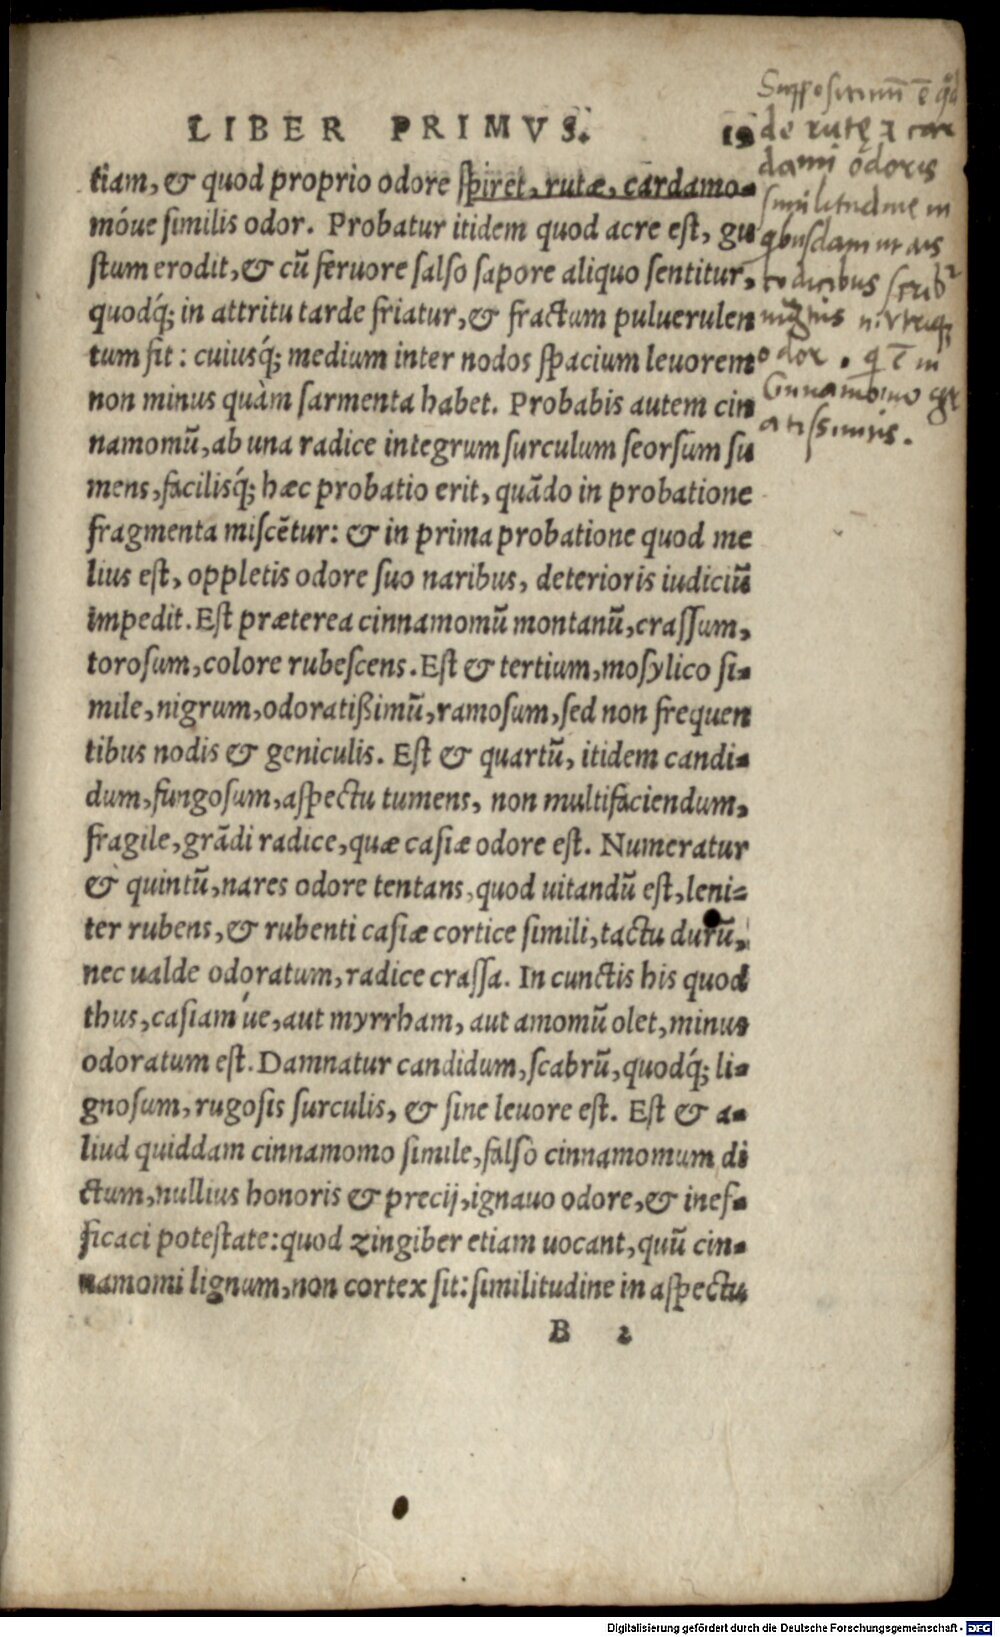 LIBER PRIMVS. 19
tiam, & quod proprio odore spiret, rutæ, cardamo-
móue similis odor. Probatur itidem quod acre est, gu
stum erodit, & cū feruore salso sapore aliquo sentitur,
quodq́; in attritu tarde friatur, & fractum puluerulen
tum fit: cuiusq́; medium inter nodos spacium leuorem
non minus quàm sarmenta habet. Probabis autem cin
namomū, ab una radice integrum surculum seorsum su
mens, facilisq́; hæc probatio erit, quādo in probatione
fragmenta miscētur: & in prima probatione quod me
lius est, oppletis odore suo naribus, deterioris iudiciū
impedit. Est præterea cinnamomū montanū, crassum,
torosum, colore rubescens. Est & tertium, mosylico si-
mile, nigrum, odoratißimū, ramosum, sed non frequen
tibus nodis & geniculis. Est & quartū, itidem candi-
dum, fungosum, aspectu tumens, non multifaciendum,
fragile, grādi radice, quæ casiæ odore est. Numeratur
& quintū, nares odore tentans, quod uitandū est, leni-
ter rubens, & rubenti casiæ cortice simili, tactu durū,
nec ualde odoratum, radice crassa. In cunctis his quod
thus, casiam úe, aut myrrham, aut amomū olet, minus
odoratum est. Damnatur candidum, scabrū, quodq́; li-
gnosum, rugosis surculis, & sine leuore est. Est & a-
liud quiddam cinnamomo simile, falso cinnamomum di
ctum, nullius honoris & precij, ignauo odore, & inef-
ficaci potestate: quod zingiber etiam uocant, quū cin-
namomi lignum, non cortex sit: similitudine in aspectu
B 2
de rutę
dami odoris
similitudine in
codicibus
odor
Cinnamomo
Digitalisierung gefördert durch die Deutsche Forschungsgemeinschaft - DFG